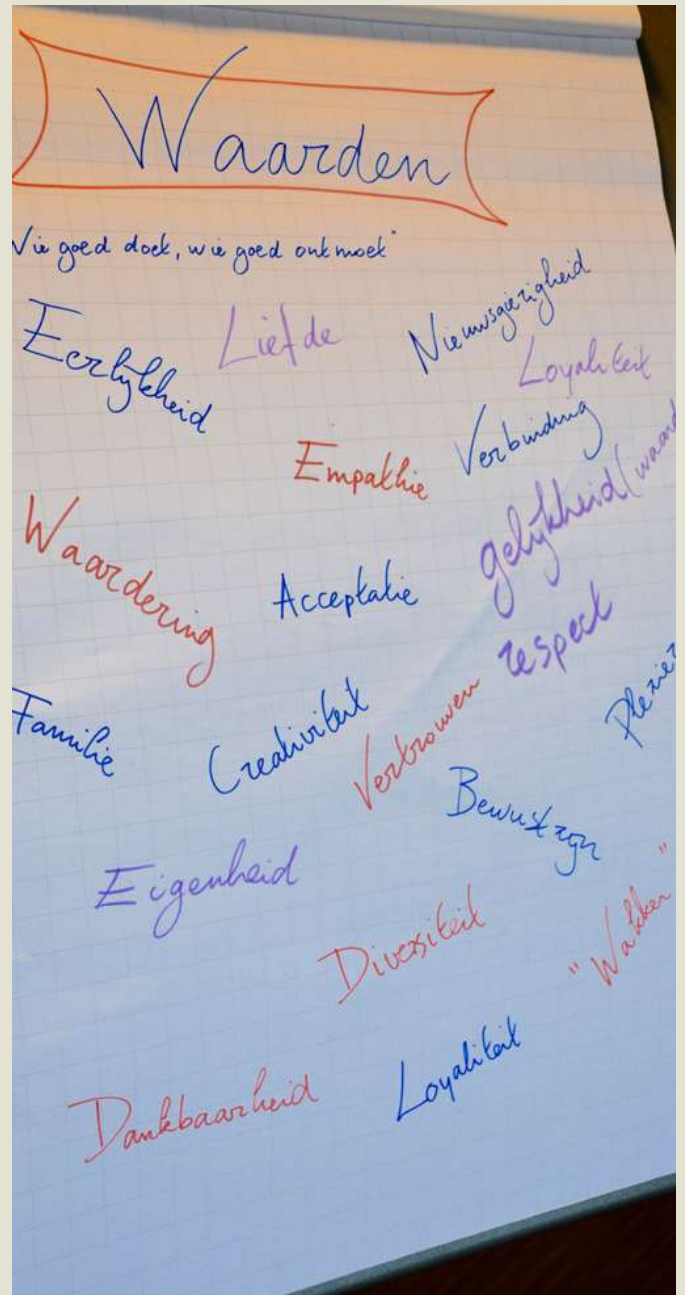 Waarden
Wie goed doet, wie goed ontmoet"
Eerlijkheid
Liefde
Nieuwsgierigheid
Loyaliteit
Empathie
Verbinding
gelijkheid (waard
Waardering
Acceptatie
respect
Familie
Creativiteit
Vertrouwen
Plezier
Bewustzijn
Eigenheid
Diversiteit
"Wakker"
Dankbaarheid
Loyaliteit